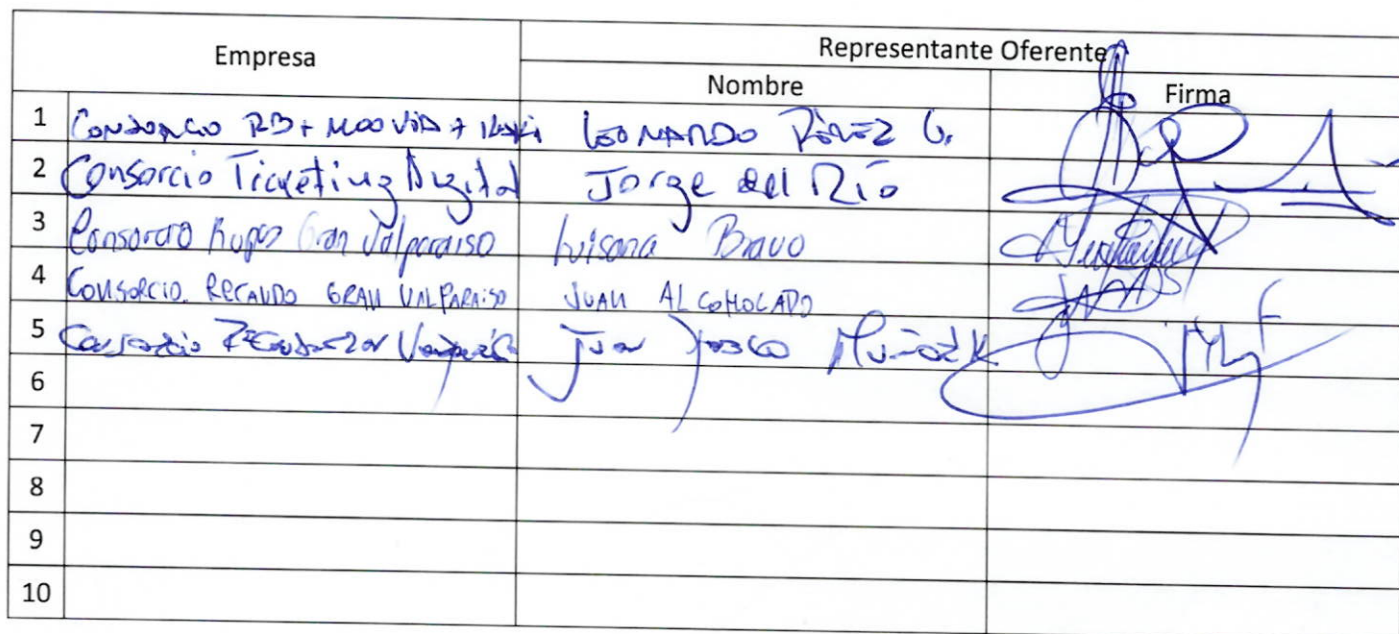 Empresa
Representante Oferente
Nombre
Firma
1 CONSORCIO RB + MOOVID + LEONARDO PÉREZ G.
2 Consorcio Ticketing Digital Jorge del Río
3 Consorcio Gran Valparaiso Luisana Bravo
4 CONSORCIO RECAUDO GRAN VALPARAISO JUAN ALCOHOLADO
5 Consorcio Juan Muñoz K
6
7
8
9
10